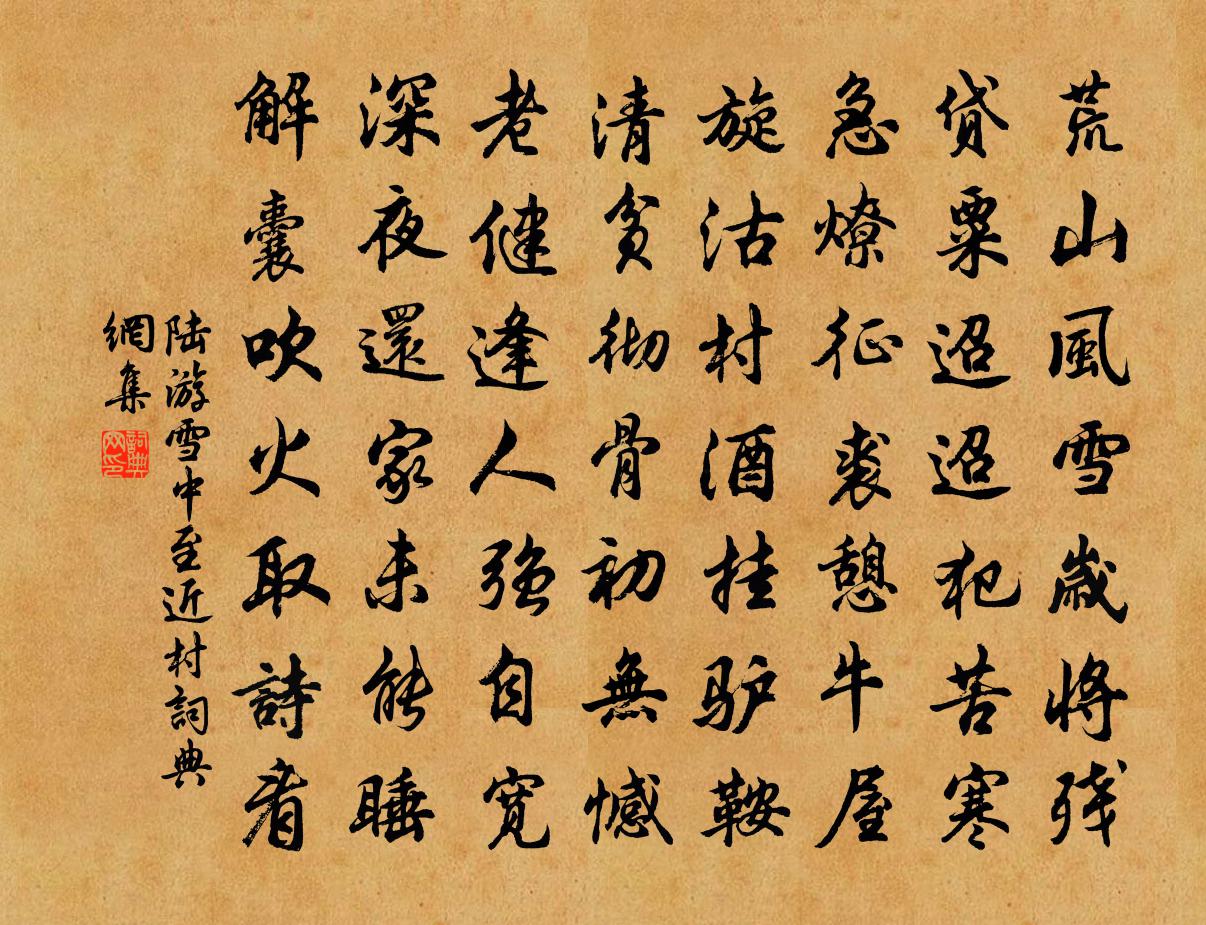 荒山風雪歲將残
貸粟迢迢犯苦寒
急燎征裘憩牛屋
旋沽村酒挂驴鞍
清貧彻骨初無憾
老健逢人强自宽
深夜還家未能睡
解囊吹火取詩看
陆游雪中至近村詞典
網集
詞典
网印